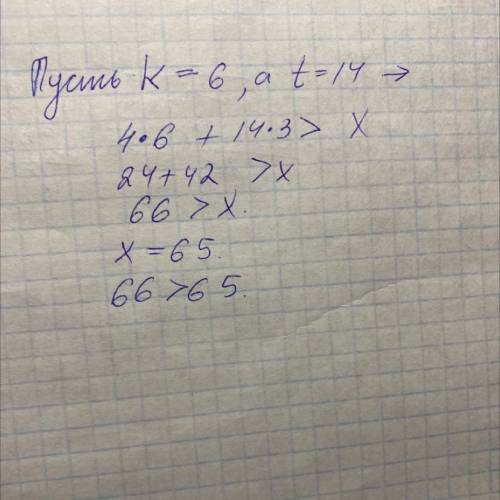 Пусть k = 6, а t = 14 →
4•6 + 14•3 > x
24 + 42 > x
66 > x.
x = 65.
66 > 65.